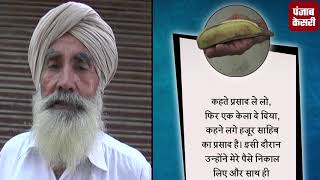 पंजाब
केसरी
कहते प्रसाद ले लो,
फिर एक केला दे दिया,
कहने लगे हजूर साहिब
का प्रसाद है। इसी दौरान
उन्होंने मेरे पैसे निकाल
लिए और साथ ही